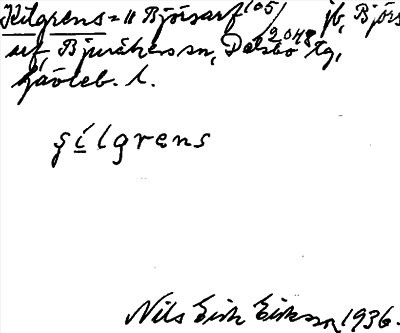 Kilgrens = "Björsarf 105/2048 jb, Björs
arf, Bjuråkers sn, Delsbo tg,
Gävleb. l.
gílgrens
Nils Erik Eriksson 1936.